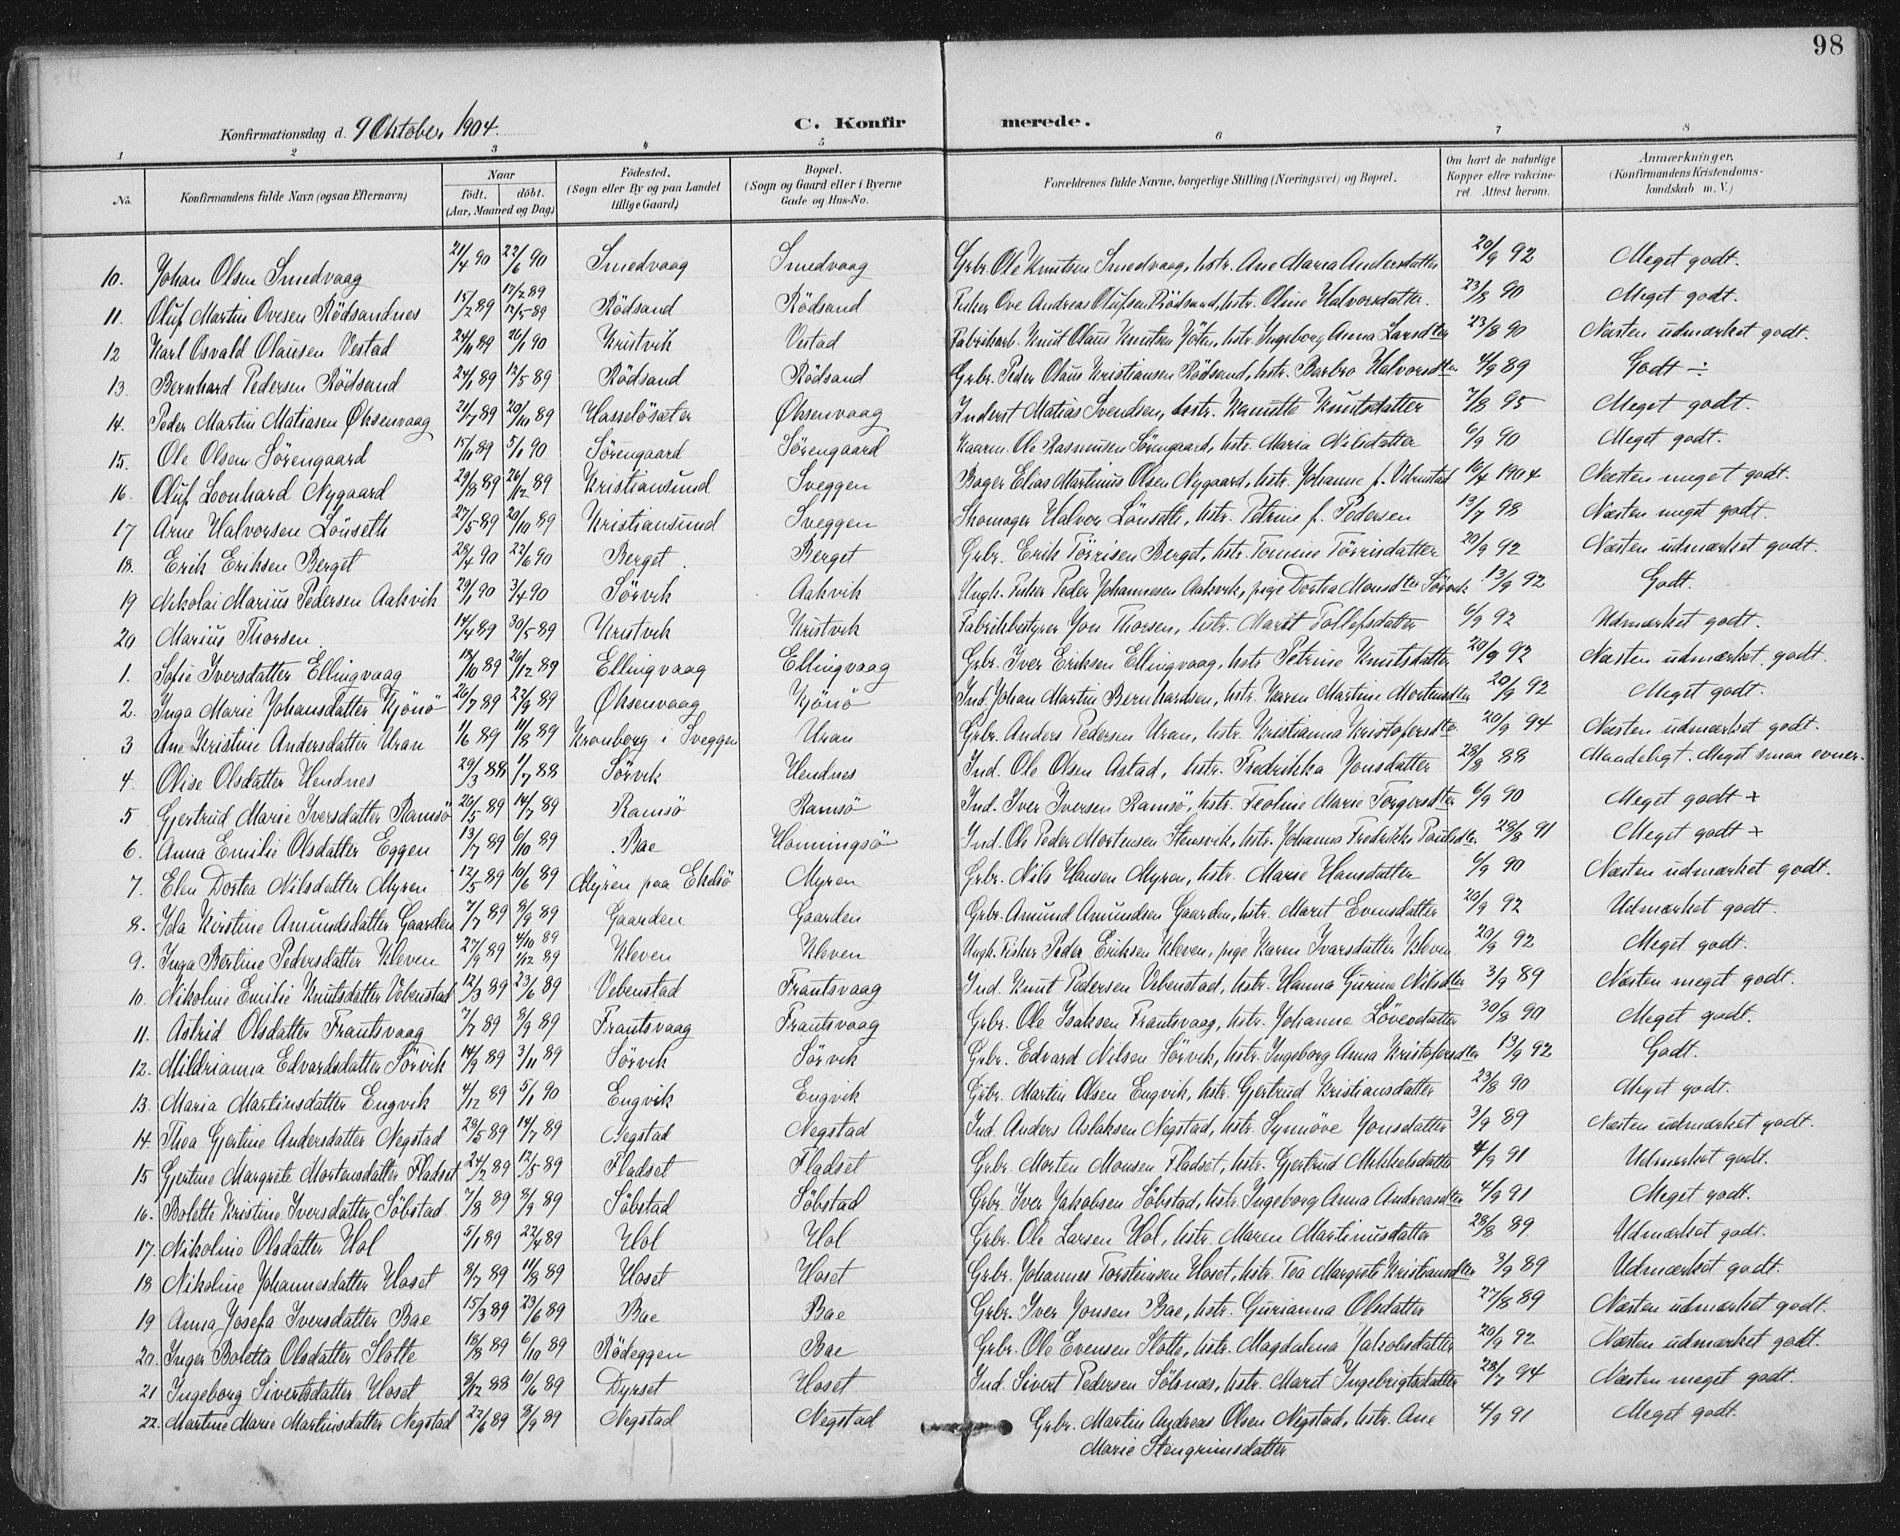 98
Konfirmationsdag d. 9 Oktober 1904. C. Konfirmerede.
1 2 3 4 5 6 7 8
No. Konfirmandens fulde Navn (ogsaa Efternavn) Naar födt. döbt. (Aar, Maaned og Dag) Födested. (Sogn eller By og paa Landet tillige Gaard) Bopæl. (Sogn og Gaard eller i Byerne Gade og Hus-No. Forældrenes fulde Navne, borgerlige Stilling (Næringsvei) og Bopæl. Om havt de naturlige Kopper eller vakcineret Attest herom. Anmærkninger. (Konfirmandens Kristendomskundskab m. V.)
10. Johan Olsen Smedvaag 21/4 90 22/6 90 Smedvaag Smedvaag Grbr. Ole Knutsen Smedvaag, hstr. Ane Maria Andersdatter 20/9 92 Meget godt.
11. Oluf Martin Ovesen Rödsandnes 15/2 89 17/2 89 12/5 89 Rödsand Rödsand Fisker Ove Andreas Olufsen Rödsand, hstr. Oline Halvorsdatter. 23/8 90 Meget godt.
12 Karl Osvald Olausen Vestad 24/11 89 26/1 90 Kristvik Vestad Fabrikarb. Knut Olaus Knutsen, hstr. Ingeborg Anna Larsdter 23/8 90 Næsten udmærket godt.
13. Bernhard Pedersen Rödsand 24/1 89 12/5 89 Rödsand Rödsand Grbr. Peder Olaus Kristiansen Rödsand, hstr. Barbro Halvorsdter 4/9 89 Godt ÷
14. Peder Martin Matiasen Øksenvaag 21/7 89 20/10 89 Hasselösæter Øksenvaag Inderst Matias Svendsen, hstr. Kanutte Knutsdatter 7/8 95 Meget godt.
15. Ole Olsen Sörengaard 15/11 89 5/1 90 Sörengaard Sörengaard Ole Rasmussen Sörengaard, hstr. Maria Nilsdatter 6/9 90 Meget godt.
16. Oluf Leonhard Nygaard 29/8 89 26/12 89 Kristiansund Sveggen Bager Elias Martinus Olsen Nygaard, hstr. Johanne f. 16/4 1904 Næsten meget godt.
17 Arne Halvorsen Lönseth 27/5 89 20/10 89 Kristiansund Sveggen Skomager Halvor Lönseth, hstr. Petrine f. Pedersen 13/7 98 Næsten meget godt.
18. Erik Eriksen Berget 28/4 90 22/6 90 Berget. Berget Grbr. Erik Törrisen Berget, hstr. Tomine Törrisdatter 20/9 92 Næsten udmærket godt.
19 Nikolai Marius Pedersen Aakvik 29/1 90 3/4 90 Sörvik Aakvik Ungk. Fisker Peder Johannesen Aakvik, pige Dortea Monsdter Sörvik 13/9 92 Godt.
20 Marius Thorsen 14/4 89 30/5 89 Kristvik Kristvik Fabrikbestyrer Jon Thorsen, hstr. Marit Tollefsdatter 6/9 92 Udmærket godt.
1. Sofie Iversdatter Ellingvaag 18/10 89 26/12 89 Ellingvaag Ellingvaag Grbr. Iver Eriksen Ellingvaag, hstr. Petrine Knutsdatter 20/9 92 Næsten udmærket godt.
2. Inga Marie Johansdatter Kjönö 26/7 89 22/9 89 Øksenvaag Kjönö Ind. Johan Martin Bernhardsen, hstr. Karen Martine Mortensdter 20/9 92 Meget godt.
3 Ane Kristine Andersdatter Uran 1/6 89 11/8 89 Kronborg i Sveggen Uran Grbr. Anders Pedersen Uran, hstr. Kristianna Kristofersdter 20/9 94 Næsten udmærket godt.
4. Olise Olsdatter Hendnes 29/3 88 1/7 88 Sörvik Hendnes Ind. Ole Olsen Astad, hstr. Fredrikka Jonsdatter 28/8 88 Maadeligt. Meget smaa evner.
5 Gjertrud Marie Iversdatter Ramsö 26/5 89 14/7 89 Ramsö Ramsö Ind. Iver Iversen Ramsö, hstr. Teoline Marie Torgersdter 6/9 90 Meget godt +
6. Anna Emilie Olsdatter Eggen 13/7 89 6/10 89 Bae Honningsö Ind. Ole Peder Mortensen Stensvik, hstr. Johanna Fredrikke Poulsdter 28/8 91 Meget godt +
7. Elen Dortea Nilsdatter Myren 12/5 89 10/6 89 Myren paa Ekelsö Myren Grbr. Nils Hansen Myren, hstr. Marie Hansdatter 6/9 90 Næsten udmærket godt.
8. Ida Kristine Amundsdatter Gaarden 7/7 89 8/9 89 Gaarden Gaarden Grbr. Amund Amundsen Gaarden, hstr. Marit Evensdatter 20/9 92 Udmærket godt.
9. Inga Bertine Pedersdatter Kleven 27/9 89 4/10 89 1/12 89 Kleven Kleven Ungk. Fisker Peder Eriksen Kleven, pige Karen Ivarsdatter Kleven 20/9 92 Meget godt.
10. Nikoline Emilie Knutsdatter Vebenstad 12/3 89 23/6 89 Vebenstad Frantsvaag Ind. Knut Pedersen Vebenstad, hstr. Hanna Gurine Nilsdter 3/9 89 Næsten meget godt.
11. Astrid Olsdatter Frantsvaag 7/7 89 8/9 89 Frantsvaag Frantsvaag Grbr. Ole Isaksen Frantsvaag, hstr. Johanne Lövesdatter 30/8 90 Meget godt.
12. Mildrianna Edvardsdatter Sörvik 14/9 89 3/11 89 Sörvik Sörvik Grbr. Edvard Nilsen Sörvik, hstr. Ingeborg Anna Kristofersdter 13/9 92 Godt.
13. Maria Martinsdatter Engvik 4/12 89 5/1 90 Engvik Engvik Grbr. Martin Olsen Engvik, hstr. Gjertrud Kristiansdatter 23/8 90 Meget godt.
14. Thea Gjertine Andersdatter Negstad 28/5 89 14/7 89 Negstad Negstad Ind. Anders Aslaksen Negstad, hstr. Synnöve Jonsdatter 3/9 89 Næsten udmærket godt.
15 Gjertine Margrete Mortensdatter Fladset 24/2 89 12/5 89 Fladset Fladset Grbr. Morten Monsen Fladset, hstr. Gjertrud Mikkelsdatter 4/9 91 Udmærket godt.
16. Bolette Kristine Iversdatter Söbstad 7/8 89 8/9 89 Söbstad Söbstad Grbr. Iver Jakobsen Söbstad, hstr. Ingeborg Anna Andreasdter 4/9 91 Meget godt.
17. Nikoline Olsdatter Hol 5/1 89 22/4 89 Hol Hol Grbr. Ole Larsen Hol, hstr. Maren Martinusdatter 28/8 89. Udmærket godt.
18 Nikoline Johannesdatter Hoset 8/7 89 11/8 89 Hoset Hoset Grbr. Johannes Torsteinsen Hoset, hstr. Tea Margrete Kristiansdter 3/9 89 Udmærket godt.
19 Anna Josefa Iversdatter Bae 15/3 89 23/6 89 Bae Bae Grbr. Iver Jonsen Bae, hstr. Gurianna Olsdatter 27/8 89 Næsten udmærket godt.
20. Inger Boletta Olsdatter Slotte 18/8 89 6/10 89 Rödeggen Bae Grbr. Ole Evensen Slotte, hstr. Magdalena Jakobsdatter 20/9 92 Næsten udmærket godt.
21 Ingeborg Sivertsdatter Hoset 8/12 88 10/6 89 Dyrset Hoset Ind. Sivert Pedersen Sölsnæs, hstr. Marit Ingebrigtsdatter 28/7 94 Næsten meget godt.
22. Martine Marie Martinsdatter Negstad 22/6 89 8/9 89 Negstad Negstad Grbr. Martin Andreas Olsen Negstad, hstr. Ane 4/9 91 Meget godt.
Marie Stengrimsdatter